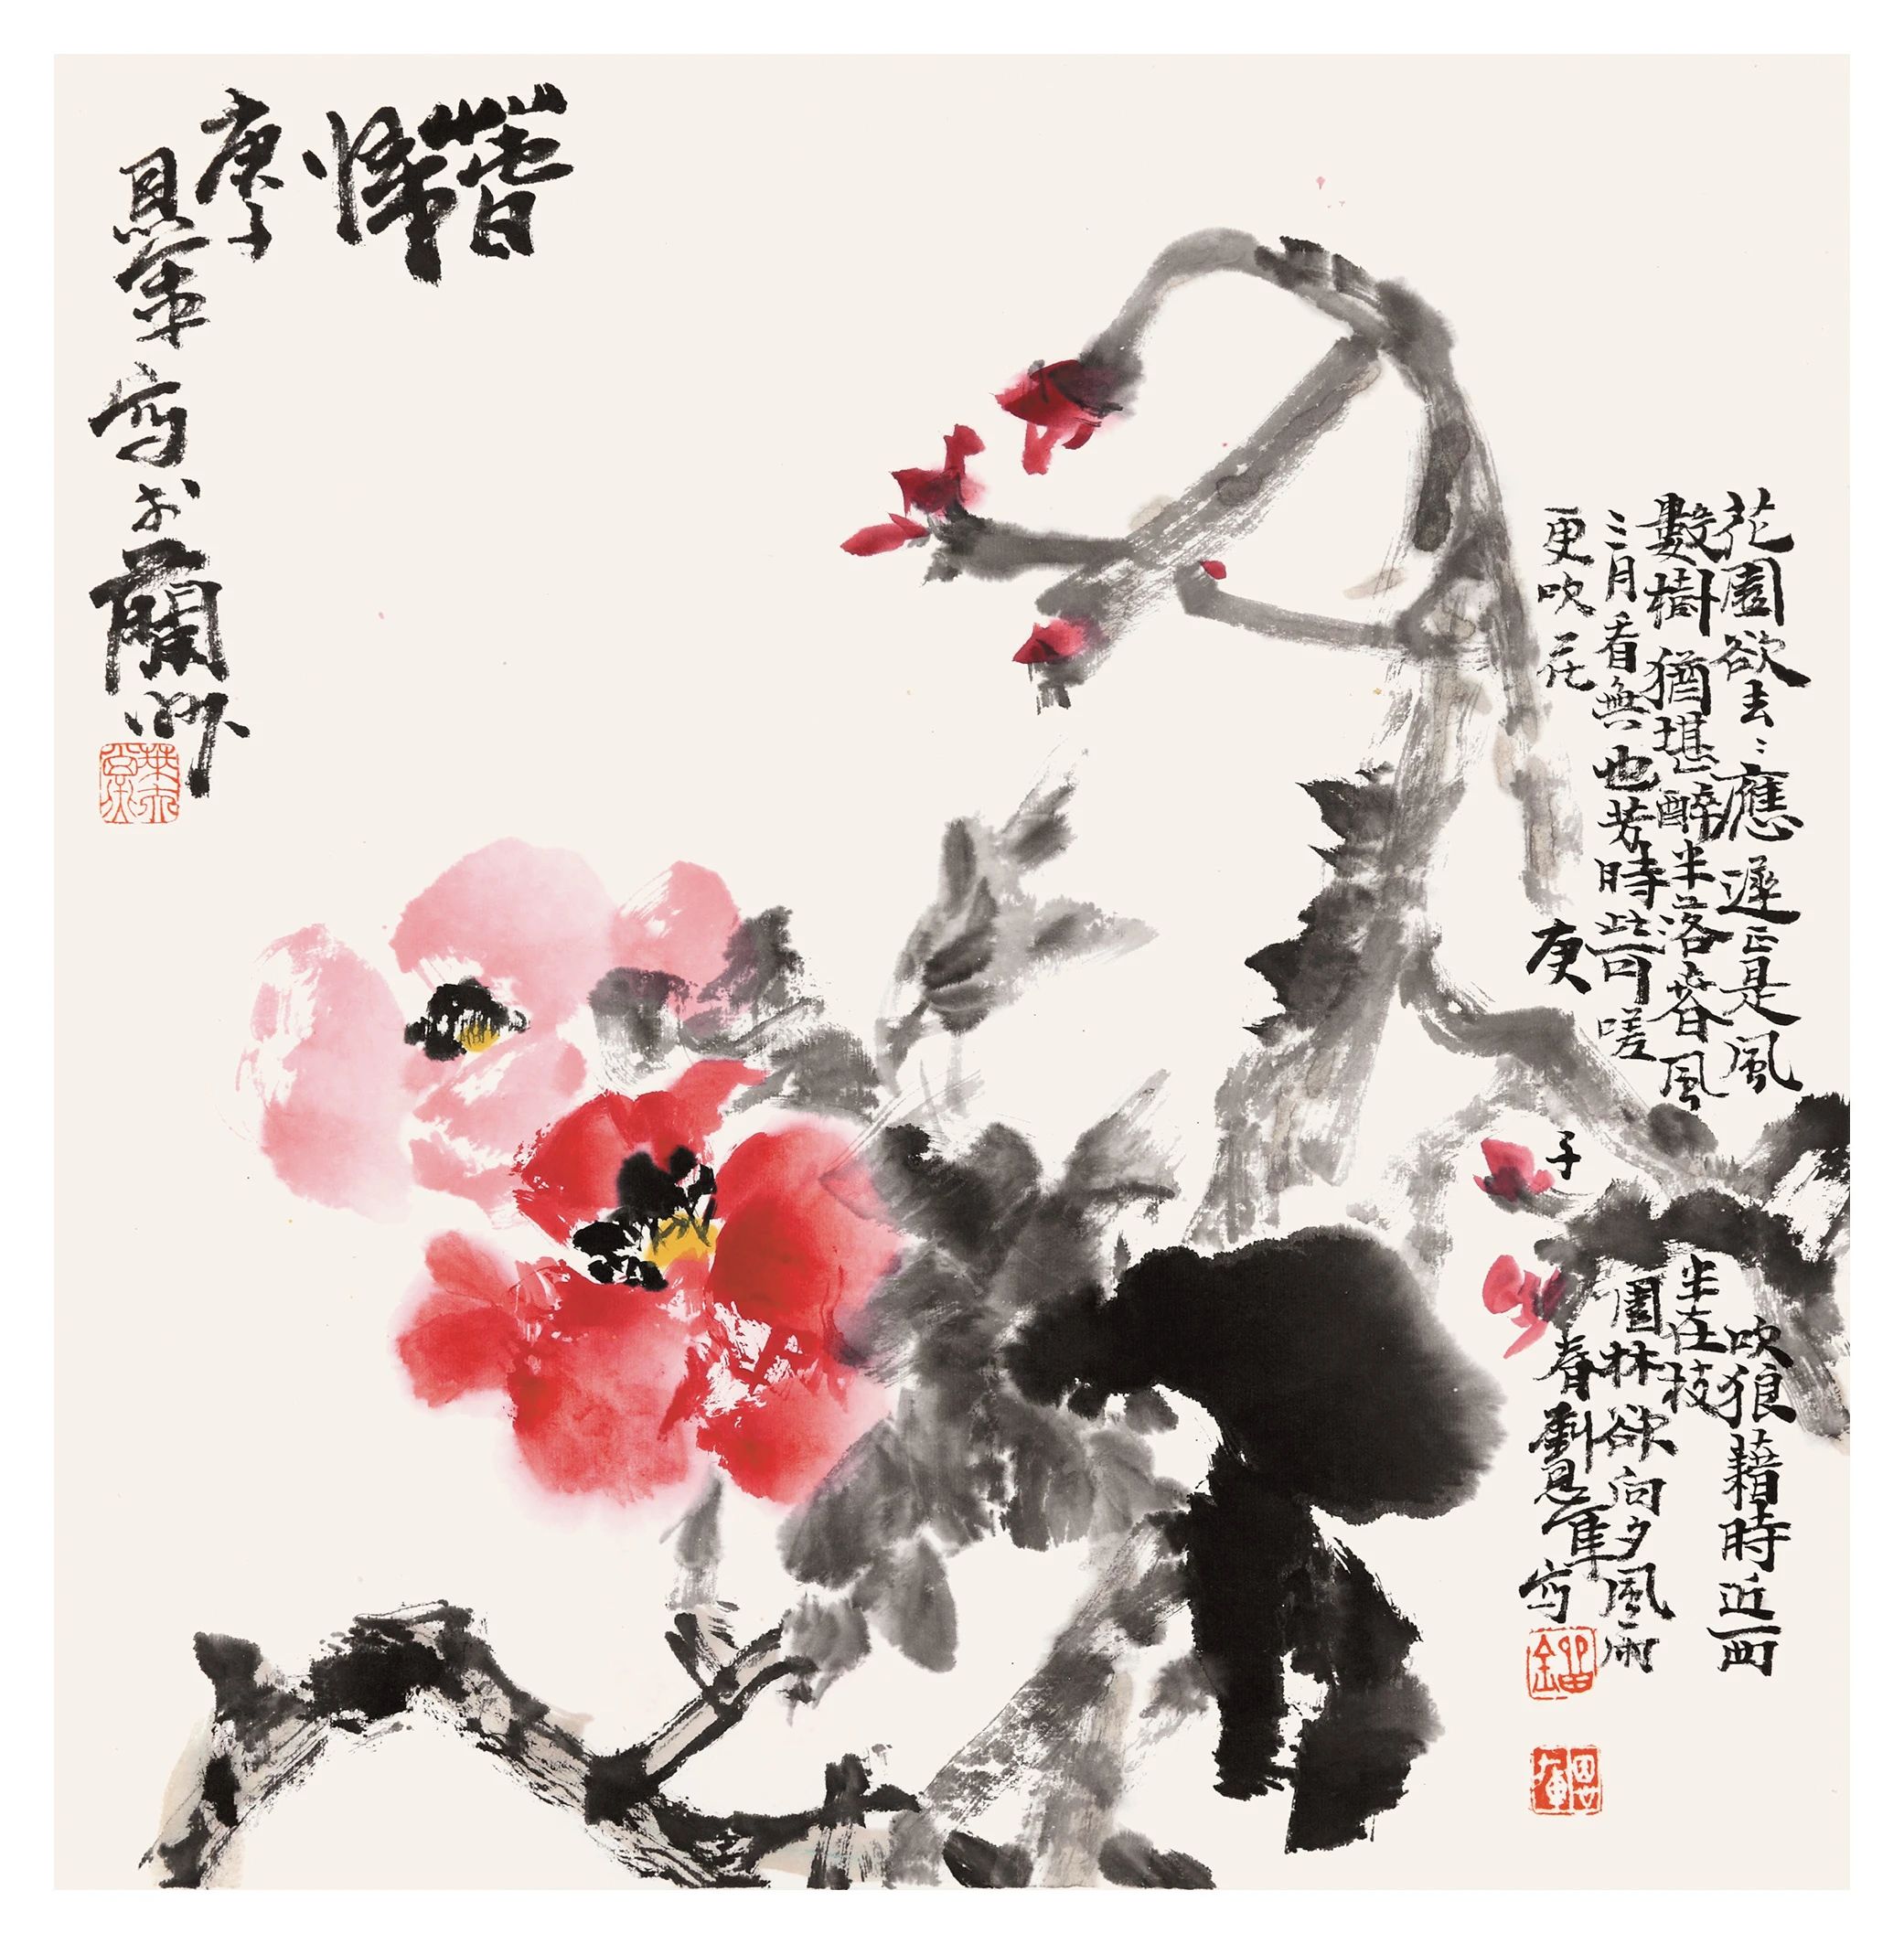 花園欲去:應遲正是風吹狼藉時近西
數樹猶堪醉半落春風半在枝
三月看無也芳時此可嗟園林欲向夕風雨
更吹花庚子春劉恩軍寫
恩軍
庚子
恩軍寫於蘭州